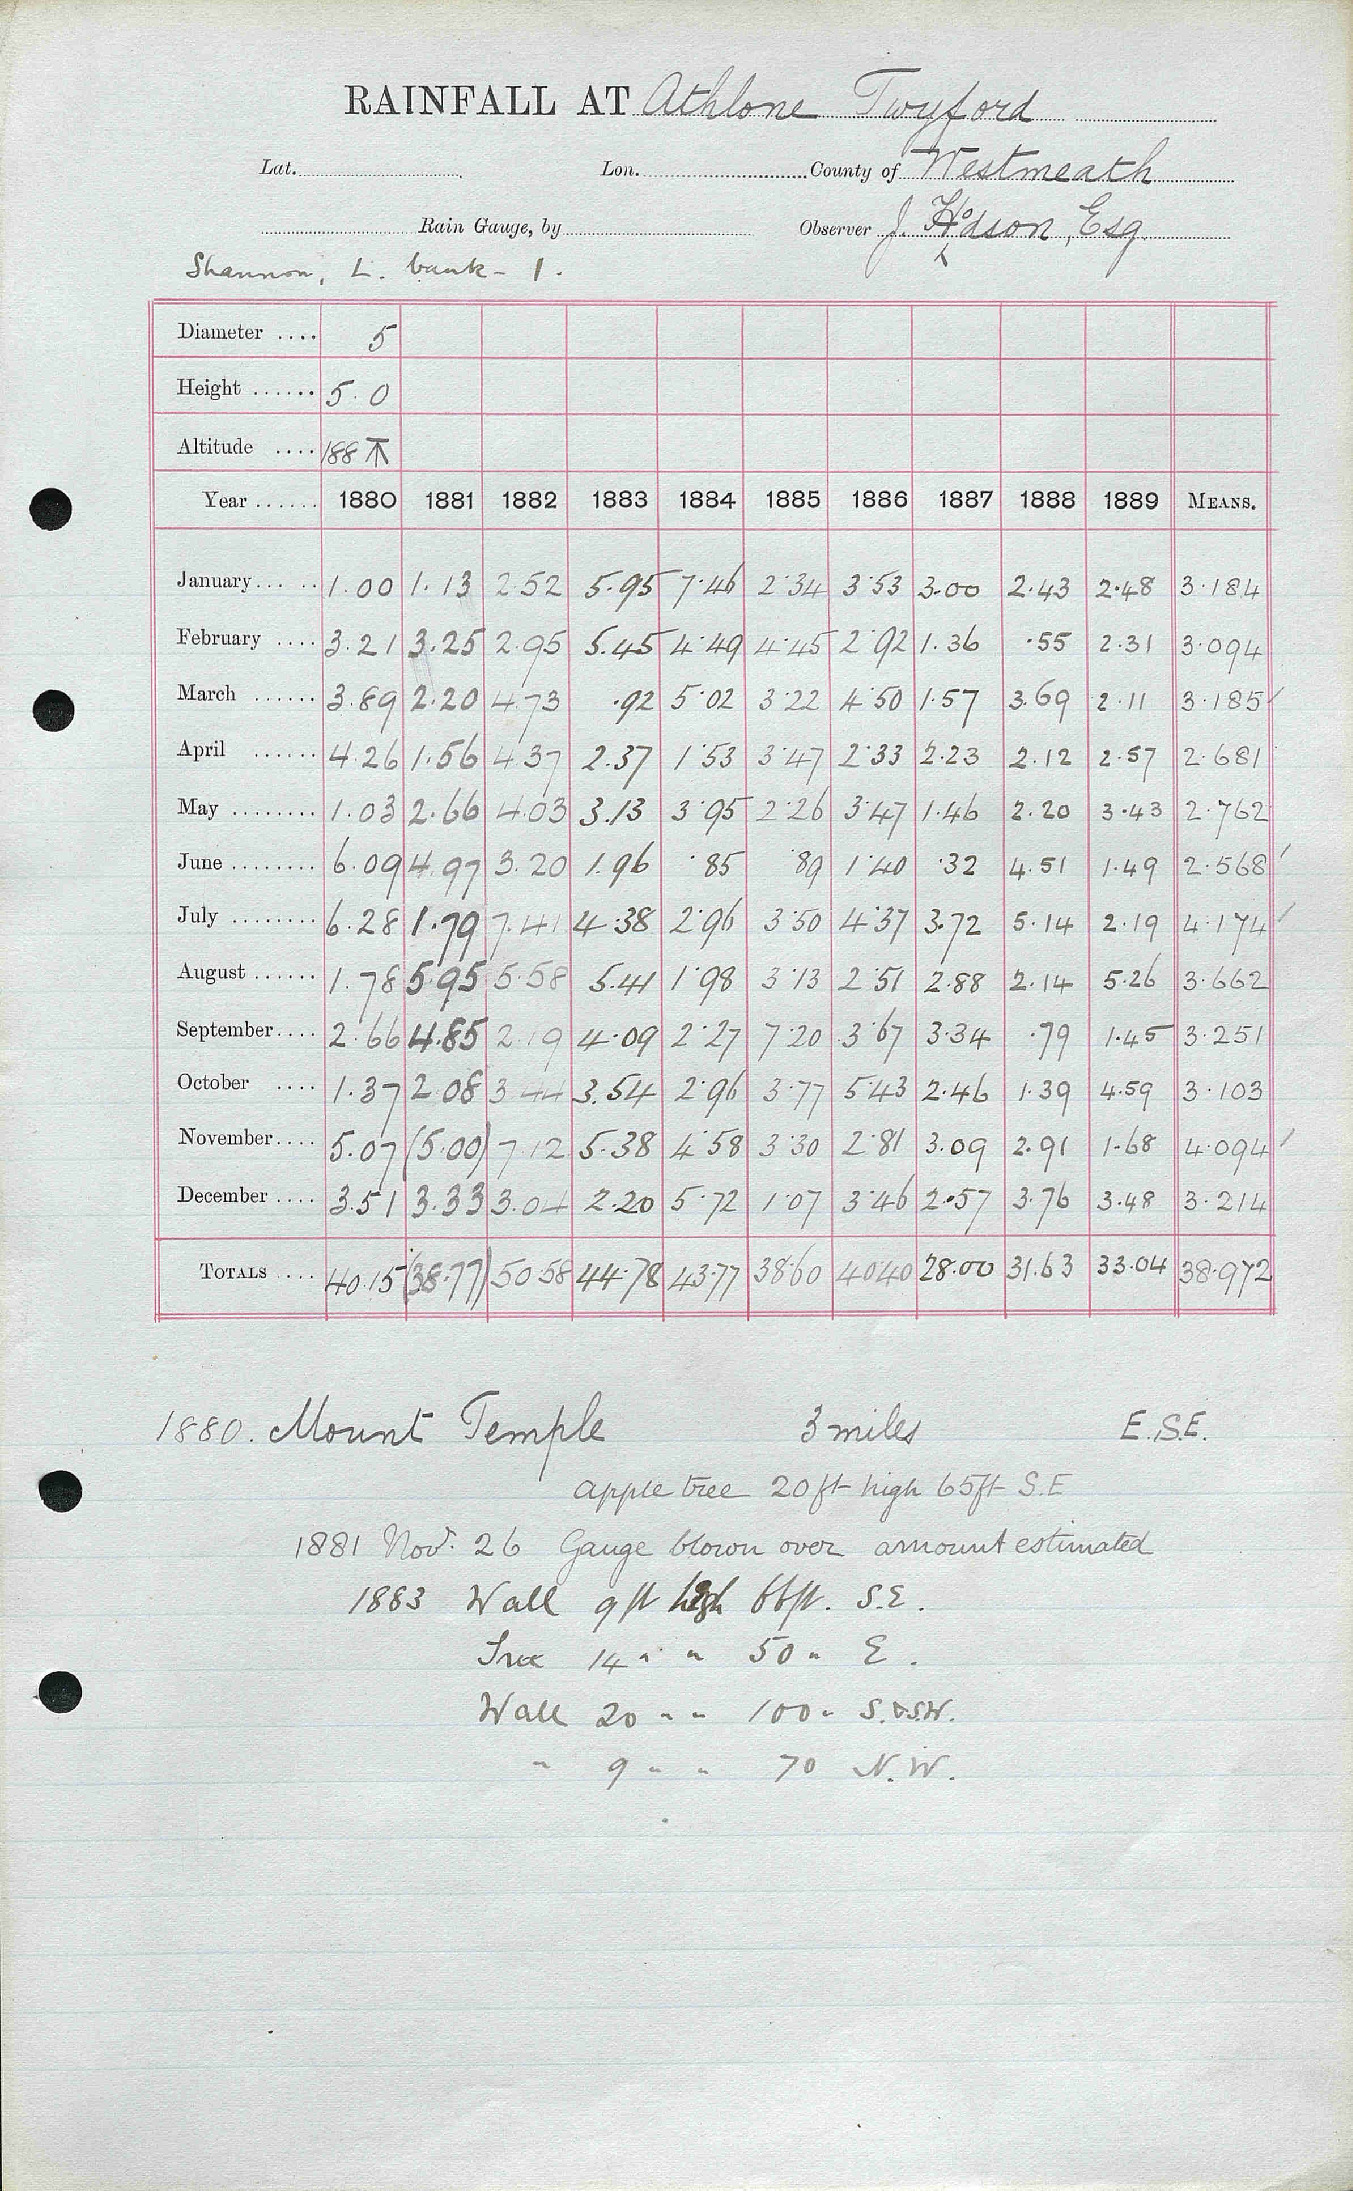 RAINFALL AT Athlone Twyford
Lat. Lon. County of Westmeath
Rain Gauge, by Observer J. Hodson, Esq
Shannon, L. bank - 1.
Diameter .... 5
Height ...... 5.0
Altitude .... 188
Year ...... 1880 1881 1882 1883 1884 1885 1886 1887 1888 1889 MEANS.
January 1.00 1.13 2.52 5.95 7.46 2.34 3.53 3.00 2.43 2.48 3.184
February .... 3.21 3.25 2.95 5.45 4.49 4.45 2.92 1.36 .55 2.31 3.094
March ...... 3.89 2.20 4.73 .92 5.02 3.22 4.50 1.57 3.69 2.11 3.185
April ...... 4.26 1.56 4.37 2.37 1.53 3.47 2.33 2.23 2.12 2.57 2.681
May ........ 1.03 2.66 4.03 3.13 3.95 2.26 3.47 1.46 2.20 3.43 2.762
June ........ 6.09 4.97 3.20 1.96 .85 .89 1.40 .32 4.51 1.49 2.568
July ........ 6.28 1.79 7.41 4.38 2.96 3.50 4.37 3.72 5.14 2.19 4.174
August ...... 1.78 5.95 5.58 5.41 1.98 3.13 2.51 2.88 2.14 5.26 3.662
September.... 2.66 4.85 2.19 4.09 2.27 7.20 3.67 3.34 .79 1.45 3.251
October .... 1.37 2.08 3.44 3.54 2.96 3.77 5.43 2.46 1.39 4.59 3.103
November.... 5.07 (5.00) 7.12 5.38 4.58 3.30 2.81 3.09 2.91 1.68 4.094
December .... 3.51 3.33 3.04 2.20 5.72 1.07 3.46 2.57 3.76 3.48 3.214
TOTALS .... 40.15 (38.77) 50.58 44.78 43.77 38.60 40.40 28.00 31.63 33.04 38.972
1880. Mount Temple 3 miles E.S.E.
apple tree 20ft high 65ft S.E
1881 Nov. 26 Gauge blown over amount estimated
1883 Wall 9 ft high 66ft. S.E.
Tree 14 " " 50 " E.
Wall 20 " " 100 " S. & S.W.
" 9 " " 70 N.W.